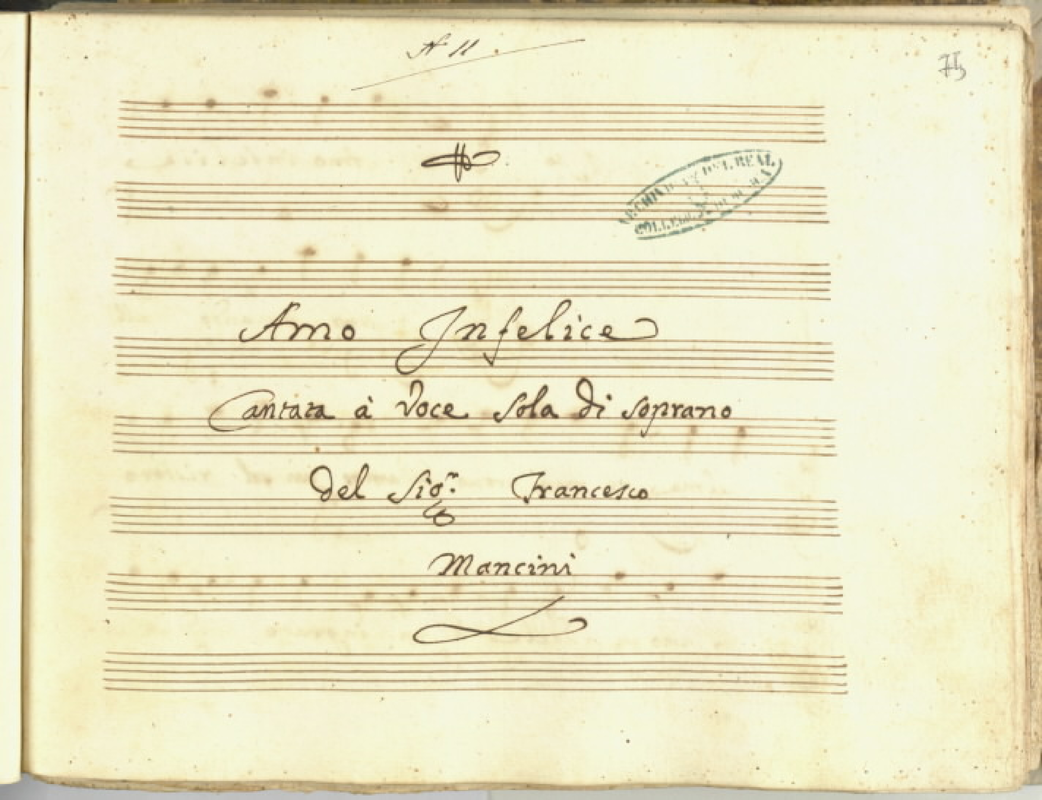 N 11
75
ARCHIVIO DEL REAL
COLLEGIO DI MUSICA
Amo Infelice
Cantata à Voce Sola di Soprano
del Sig.r Francesco
Mancini